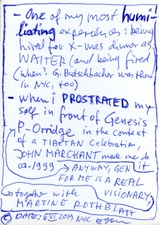 - One of my most humi-
liating experiences: being
hired for X-mas dinner as
WAITER (and being fired)
(when? G. Bretschbacher was then
in NYC, too)
- when I PROSTRATED my
self in front of Genesis
P-Orridge in the context
of a TIBETAN Celebration,
JOHN MARCHANT made me do it
ca. 1999 > ANYWAY, GEN
FOR ME IS A REAL
VISIONARY
together with
MARTINE ROTHBLATT
© DATE: 6 VII 2019 NYC